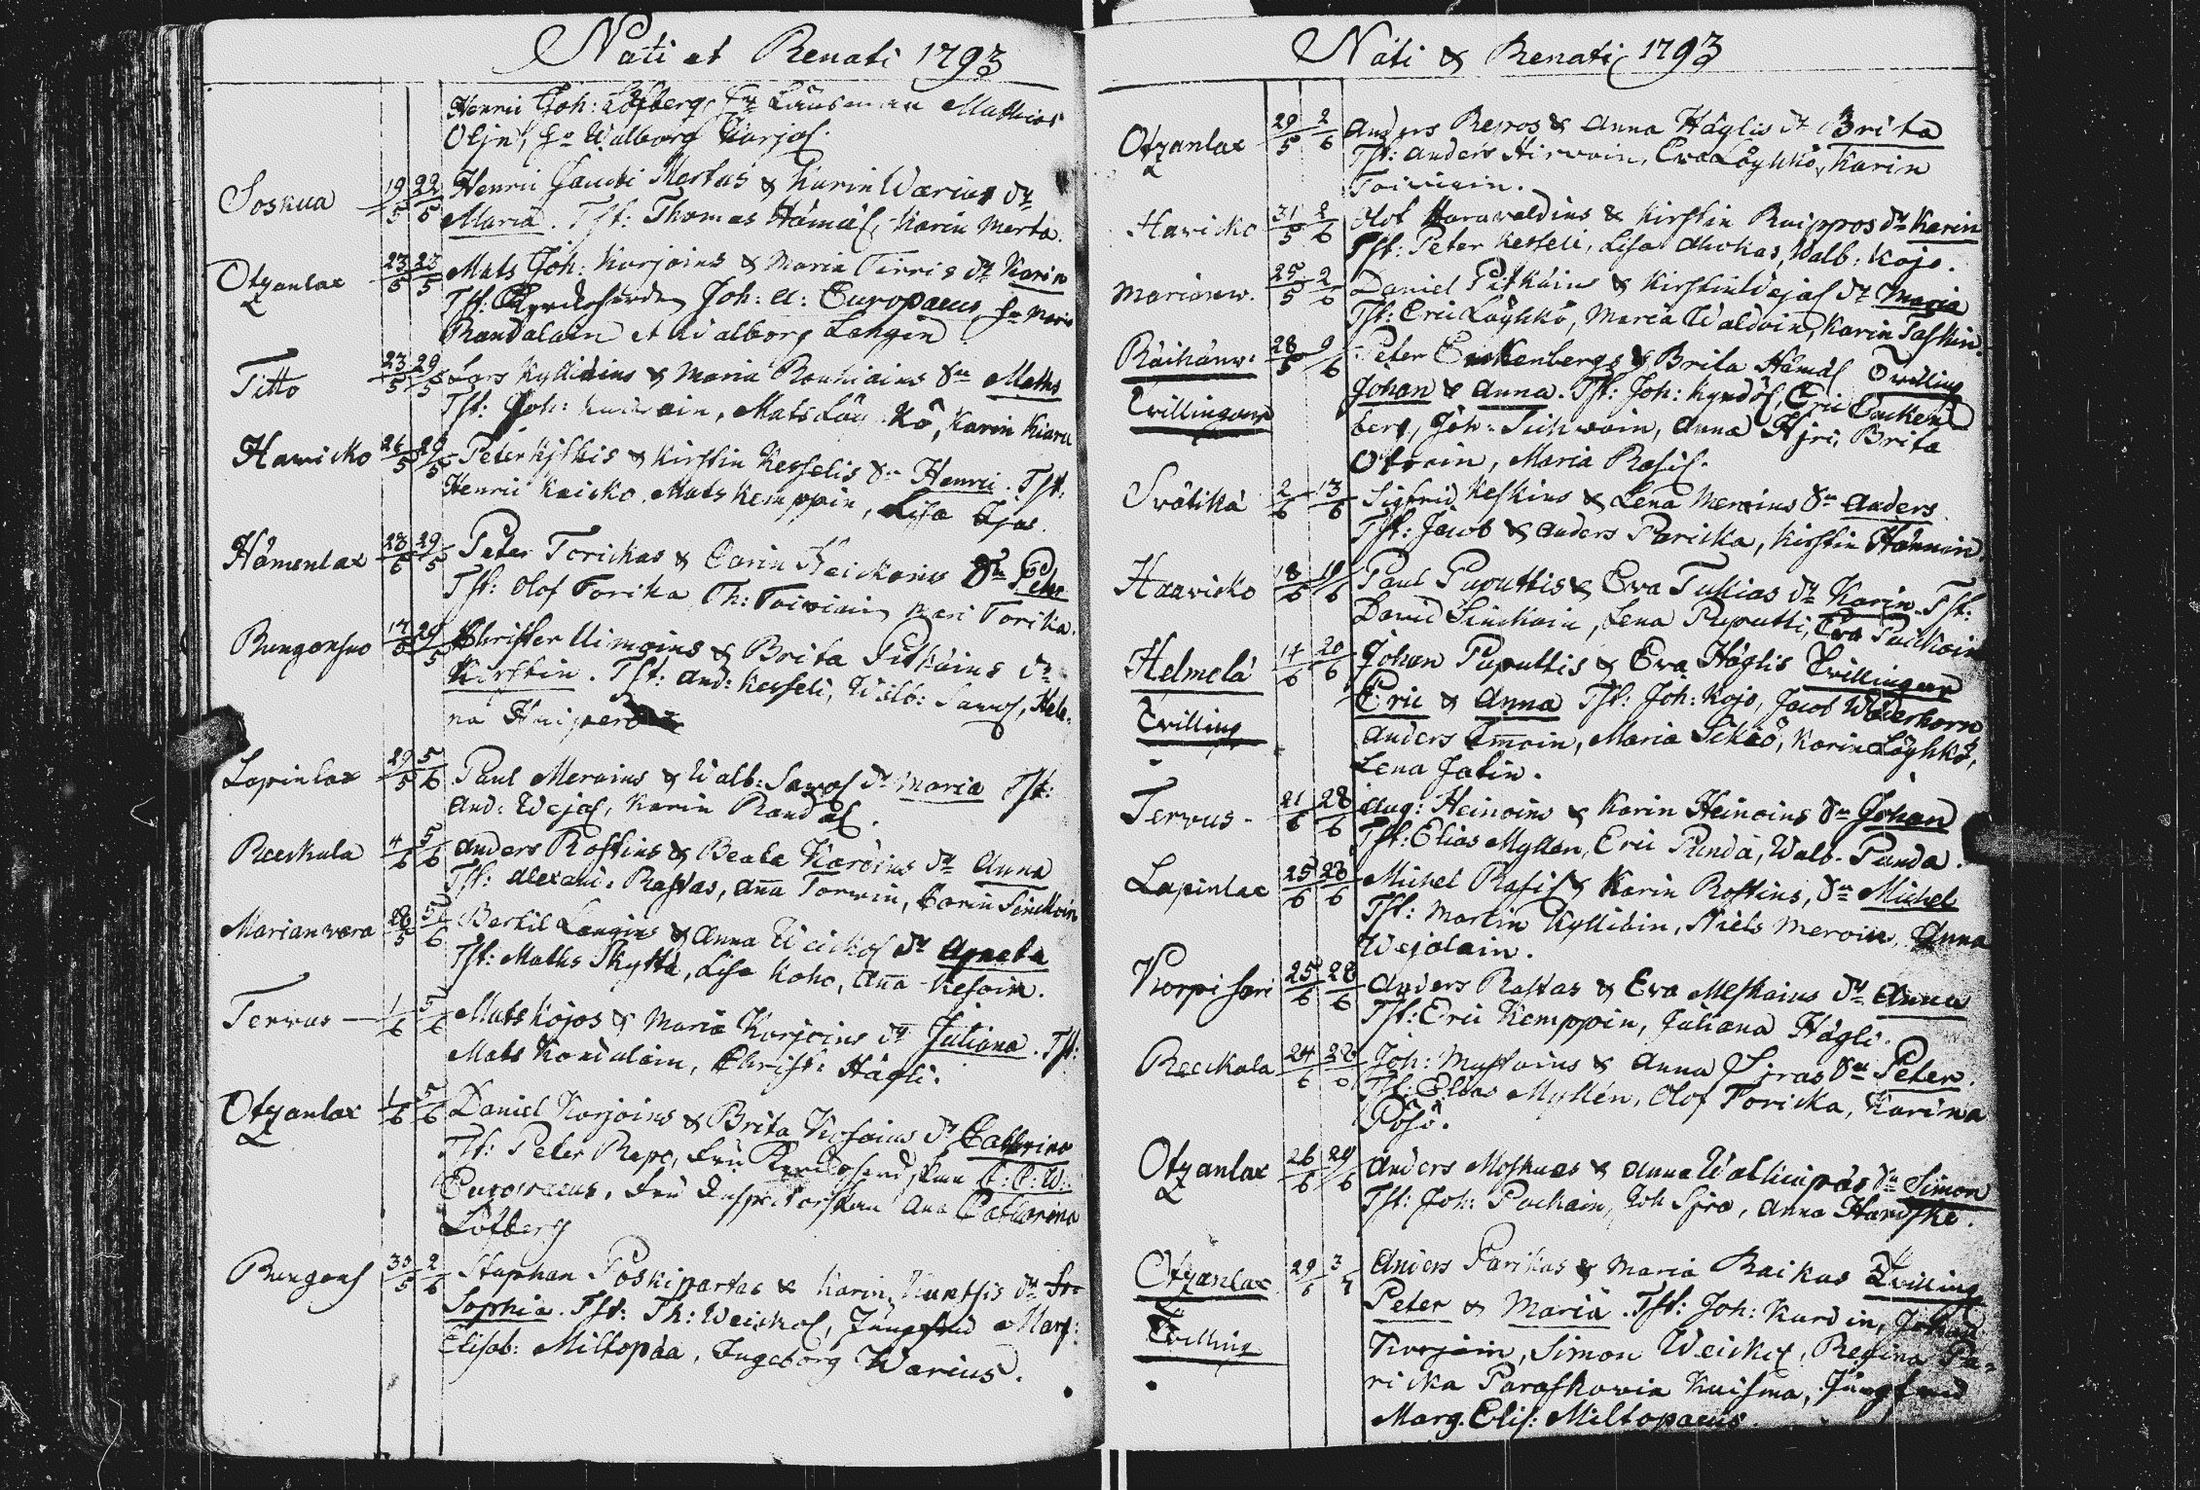 Nati et Renati 1793
Henric Joh: Löfberg, Länsman Mathias
Walborg Karjal.
Soskua 19/5 22/5 Henric Jacobi Mertas & Karin Warius dr
Maria. Tst: Thomas Hämäl, Karin Merta.
Otzanlax 23/5 23/5 Mats Joh: Korjoins & Maria Tirris dr Karin
Tst: Joh: A: Europaeus, Maria
Randalain et Walborg Langin
Titto 23/5 29/5 Lars Kyllidins & Maria Rouhiains Sn Maths
Tst: Joh: Mats Karin Kiaru
Hawicko 26/5 29/5 Peter & Kirstin Kesselis Sn Henric. Tst:
Henric Kaicko, Mats Kemppin, Lisa
Hämenlax 29/5 Peter Torickas & Carin Sn Peter
Tst: Olof Torika, Th: Toiviain, Torika.
29/5 Christer Uimoins & Brita Pitkäins dr
Kirstin. Tst: And: Kesseli, Walb: Sawol, Hele-
na
Lapinlax 29/5 5/6 Paul Merains & Walb: Sawol dr Maria Tst:
And: Wejal, Karin Randal.
Reeskula 4/6 5/6 Anders Rostins & Beata Karoins dr Anna
Tst: Alexand: Rastas, Ana Torwin, Carin Sinckoin
Marianwara 28/5 5/6 Bertil Langins & Anna Weickol dr Agneta
Tst: Maths Skyttä, Lisa Koho, Ana Kesoin.
Terwus 1/6 5/6 Mats Kojos & Maria Korjoins dr Juliana. Tst:
Mats Kondalain, Christ: Hägli.
Otzanlax 1/6 5/6 Daniel Korjoins & Brita Kosoins dr Cathrina
Tst: Peter Repo, Fru
Europaeus, Fru Inspectorskan Ana Catharina
Löfberg
Bungons 30/5 2/6 Staphan Poskipartas & Karin dr
Sophia. Tst: Th: Weickol, Jungfrud Marg:
Elisab: Miltopäa, Ingeborg Warius.
Nati & Renati 1793
Otzanlax 29/5 2/6 Anders Repos & Anna Häglis dr Brita
Tst: Anders Hirwoin, Eva Löykkö, Karin
Toiviain.
Hawicko 31/5 2/6 Olof Harawaldins & Kirstin Ruippros dr Karin
Tst: Peter Kesseli, Lisa Ahokas, Walb: Kojo.
Marianw. 25/5 2/6 Daniel Pitkäins & Kirstin Wejal dr Maria
Tst: Eric Löykkö, Maria Waldoin, Karin Taskin.
Räihänw: 28/5 9/6 Peter Enckenbergs & Brita Hämäl Twilling
Twillingar Johan & Anna. Tst: Joh: Kyndöl, Eric Encken-
berg, Joh: Tichwoin, Anna Hjri, Brita
Otroin, Maria Rasil.
Svätikä 2/6 13/6 Sigfrid Keskins & Lena Meroins Sn Anders
Tst: Jacob & Anders Paricka, Kirstin Hännin
Haavicko 18/6 19/6 Paul Puputtis & Eva Tukias dr Karin. Tst:
David Sinckoin, Lena Puputti, Eva
Helmelä 14/6 20/6 Johan Puputtis & Eva Häglis Twillingar
Twilling Eric & Anna Tst: Joh: Kojo, Jacob Wäderhorn
Anders Imoin, Maria Sickiö, Karin Löykkö,
Lena Jatin.
Terwus - 21/6 28/6 Aug: Heinoins & Karin Heinoins Sn Johan
Tst: Elias Myllen, Eric Punda, Walb. Punda.
Lapinlax 25/6 28/6 Michel Rasil & Karin Rostins, Sn Michel
Tst: Martin Kyllidin, Niels Meroin, Anna
Wejalain.
Korpisari 25/6 28/6 Anders Rastas & Eva Meskains dr Anna
Tst: Eric Kemppin, Juliana Hägli.
Reeskala 24/6 Joh: Mustoins & Anna Sjras Sn Peter.
Tst: Elias Myllén, Olof Toricka, Karina
Pösö.
Otzanlax 26/6 29/6 Anders Moskuas & Anna Wallinpäs Sn Simon
Tst: Joh: Pockain, Joh Sjra, Anna Hanske.
Otzanlax 29/6 3/7 Anders Parikas & Maria Raikas Twilling
Twilling Peter & Maria. Tst: Joh: Kurdin, Johan
Korjoin, Simon Weickol, Regina Pa-
ricka Paraskowia Kuisma, Jungfrud
Marg. Elis: Miltopaeus.